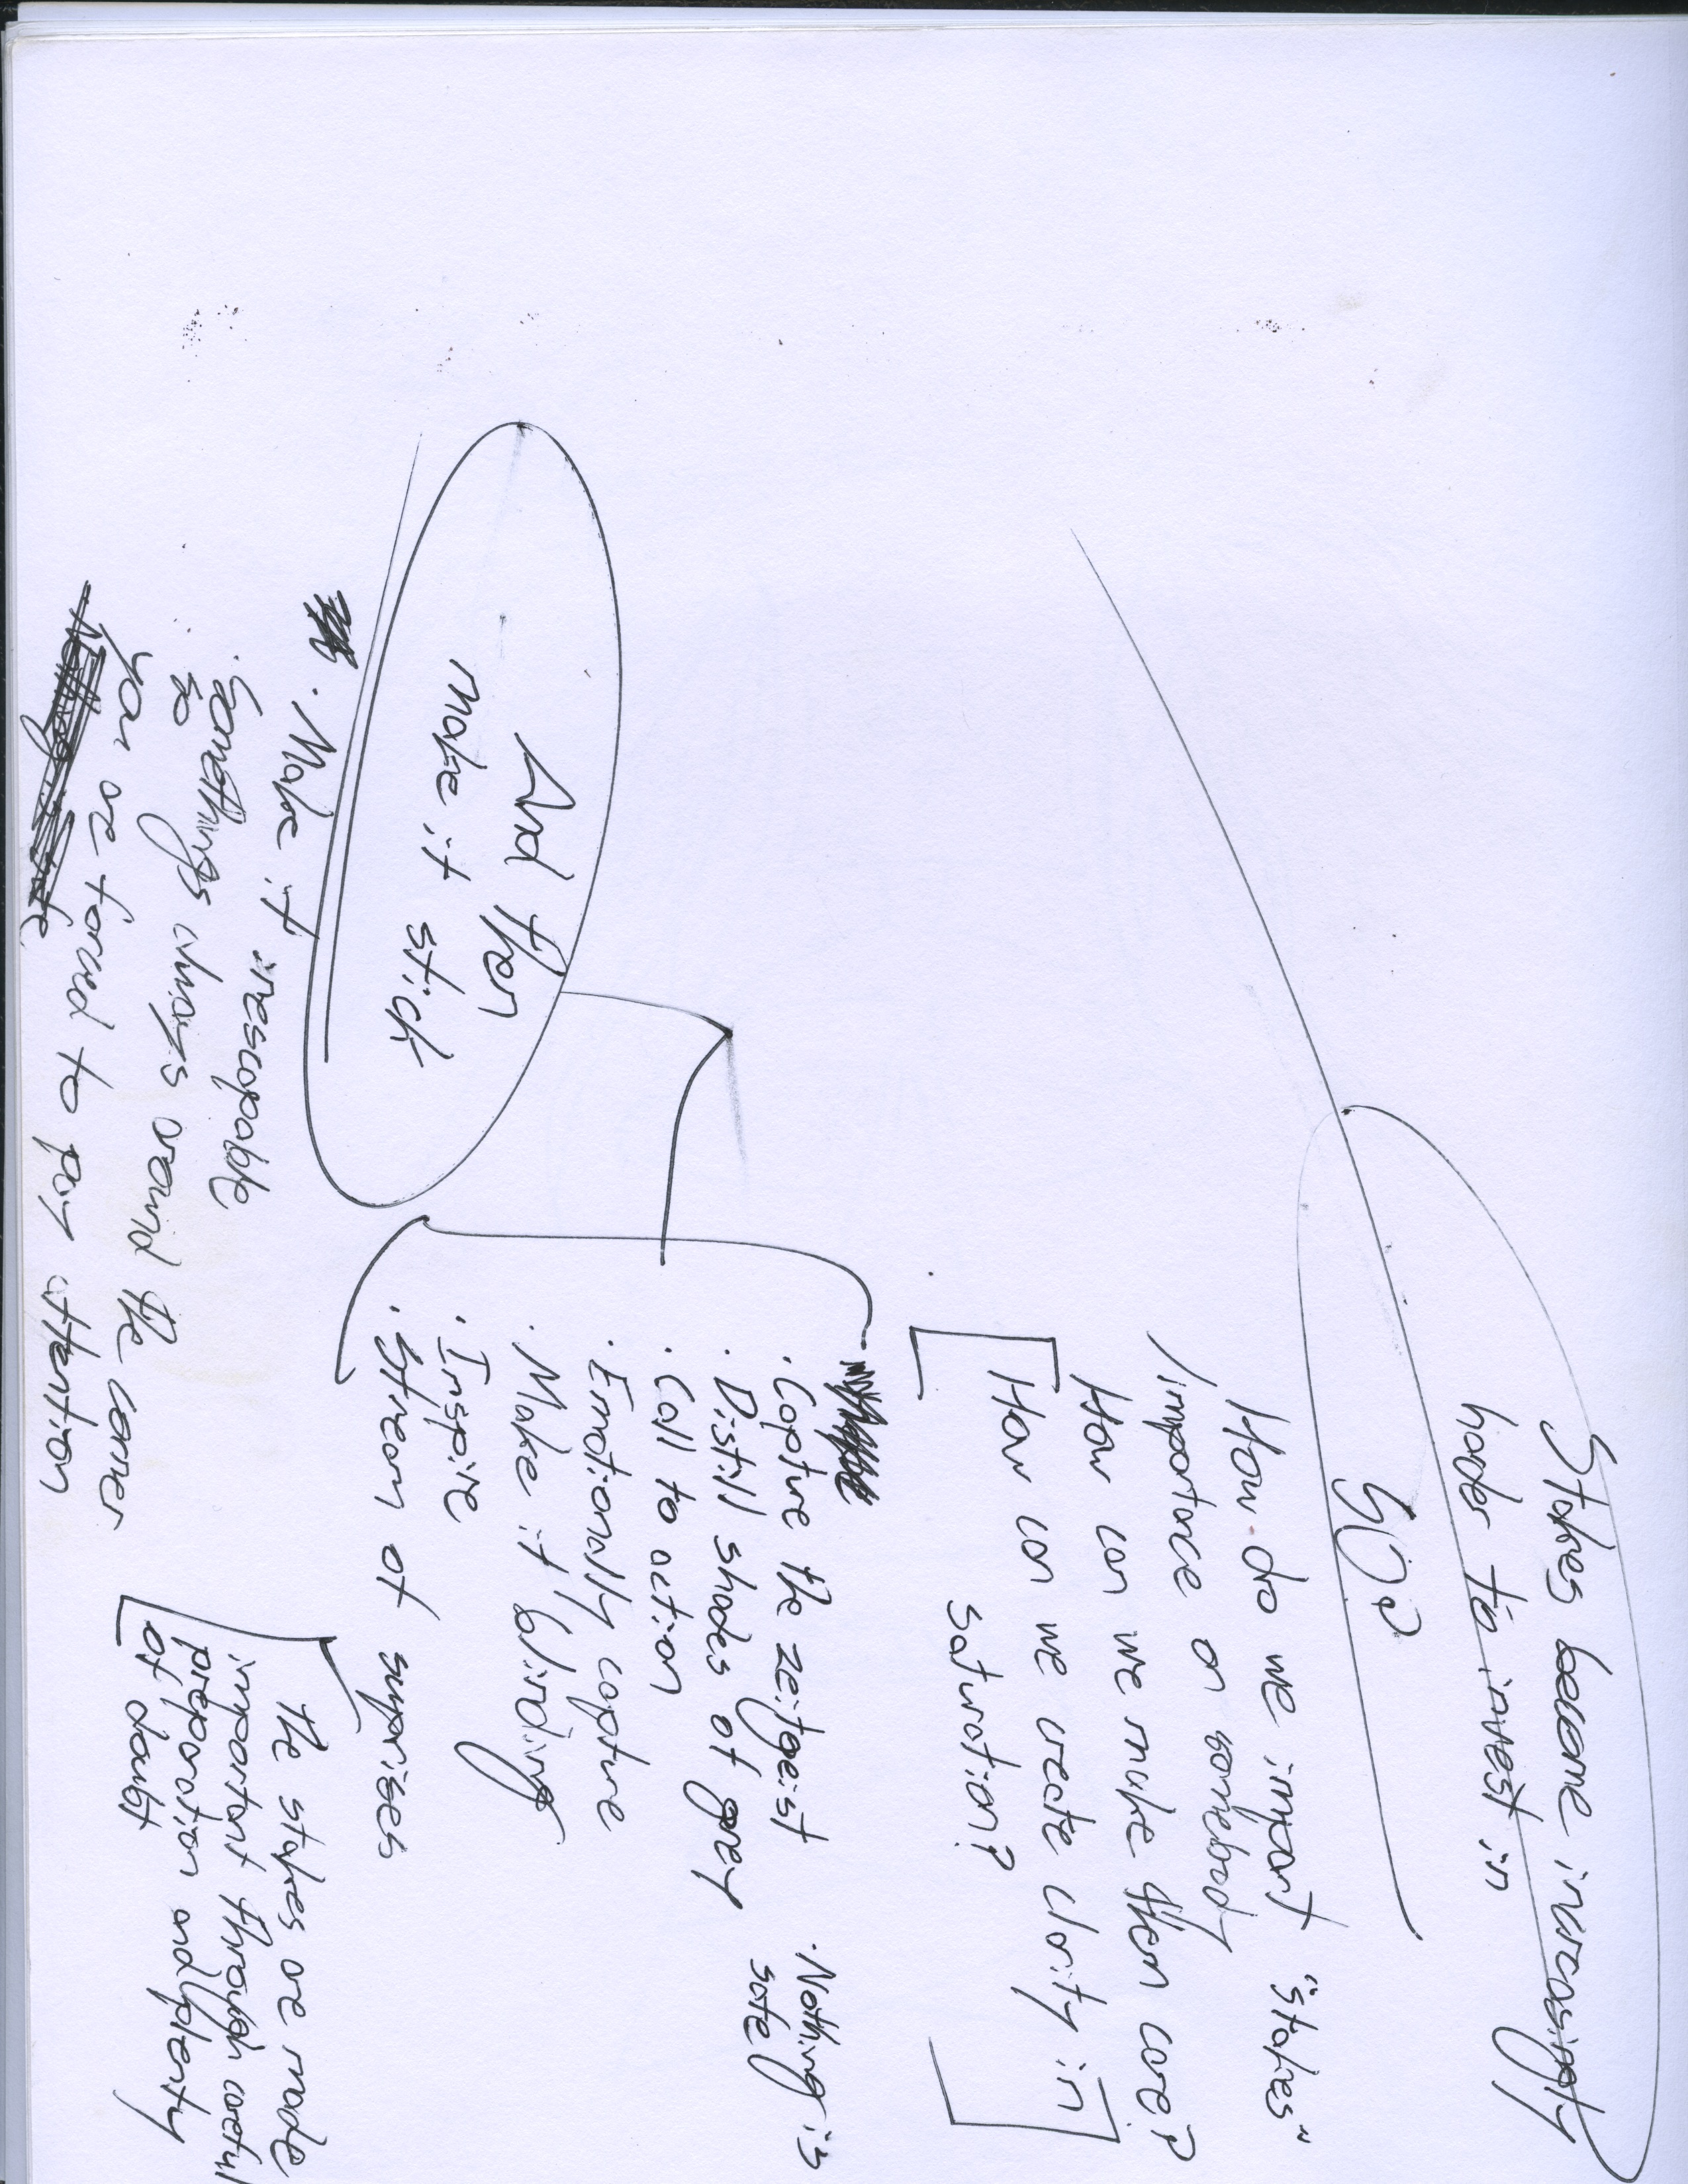 Stakes become increasingly
harder to invest in
SO?
How do we impart "Stakes"
/importance on somebody
How can we make them care?
How can we create clarity in
saturation?
· Nothing is
safe
· Capture the zeitgeist
· Distill shades of grey
· Call to action
· Emotionally capture
· Make it blinding
· Inspire
· Stream of suprises
And then
make it stick
· Make it inescapable
· Somethings always around the corner
so
you are forced to pay attention
The stakes are made
important through careful
preparation and plenty
of doubt